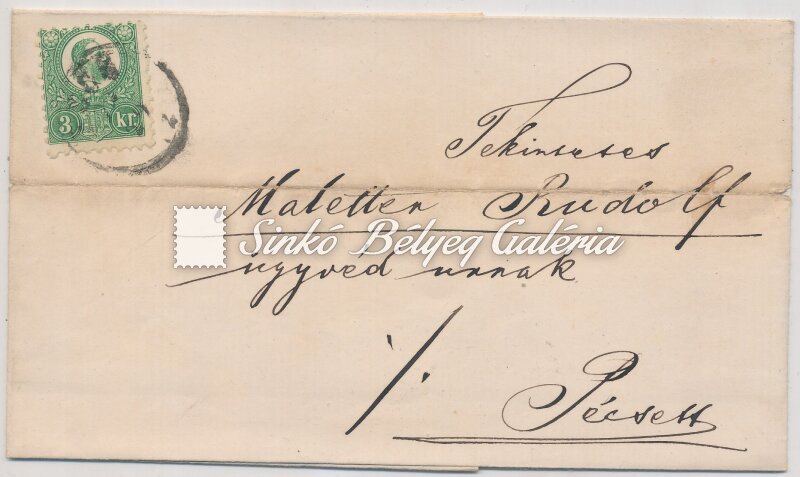 3 kr.
Tekintetes
Maletter Rudolf
Sinkó Bélyeg Galéria
ügyvéd urnak
Pécsett